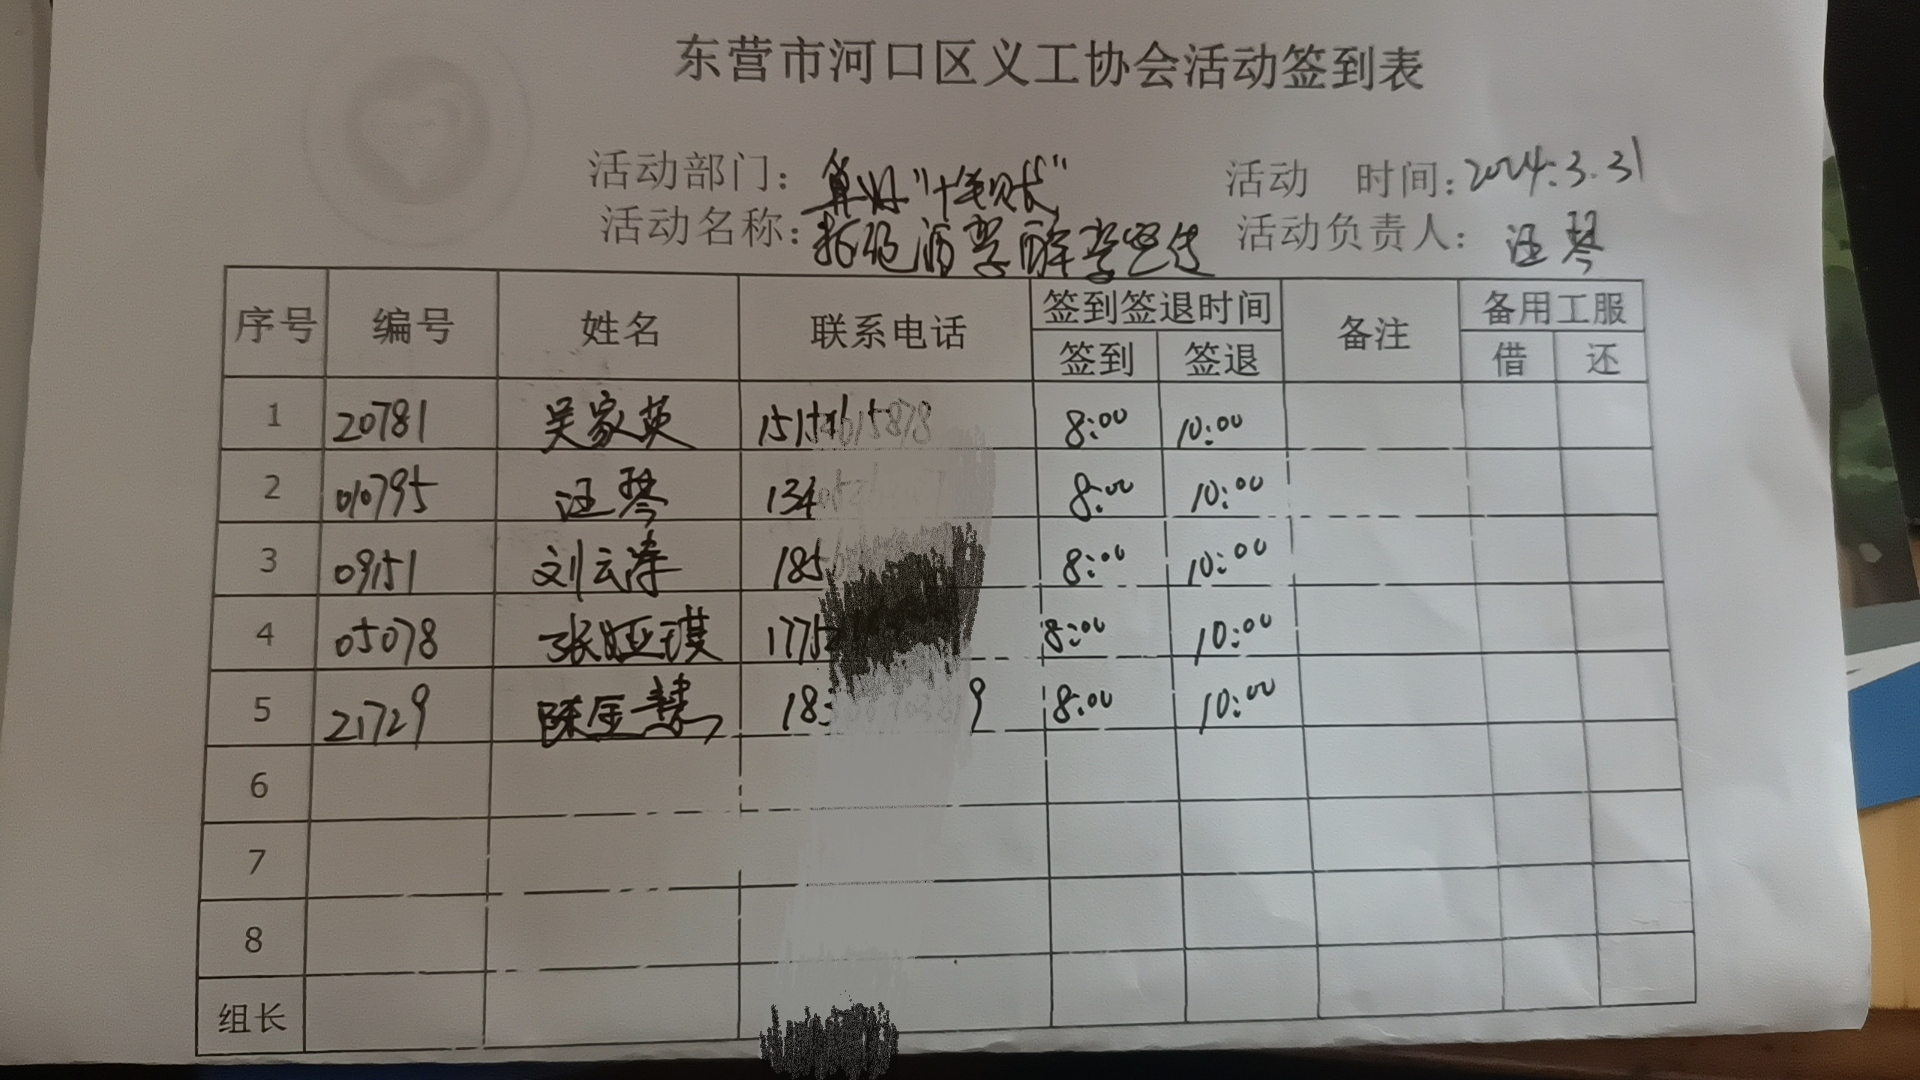 东营市河口区义工协会活动签到表
活动部门: 算好"十笔账" 活动 时间: 2024.3.31
活动名称: 拒绝酒驾醉驾宣传 活动负责人: 汪琴
序号 编号 姓名 联系电话 签到签退时间 备注 备用工服
签到 签退 借 还
1 20781 吴家英 8:00 10:00
2 010795 汪琴 134 8:00 10:00
3 09151 刘云涛 185 8:00 10:00
4 05078 张娅琪 1775 8:00 10:00
5 21729 陈金慧 183 9 8:00 10:00
6
7
8
组长